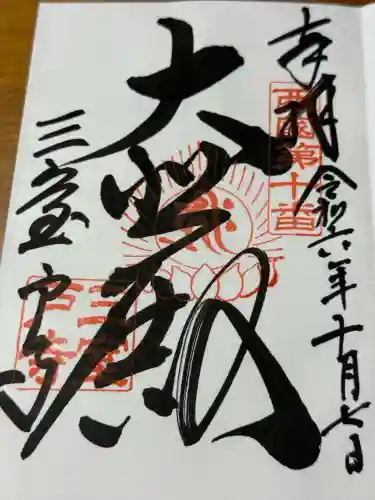 奉拝 令和六年十月七日
西国第十番
大悲殿
三室戸寺
三室戸寺